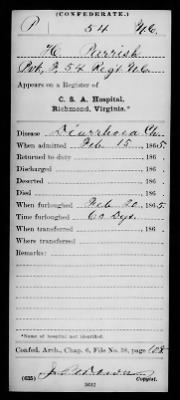 (CONFEDERATE.)
P 54 N.C.
H. Perrish
Pvt, F, 54 Regt. N.C.
Appears on a Register of
C. S. A. Hospital,
Richmond, Virginia.*
Disease Diarrhoea Ch.
When admitted Feb 15, 1865.
Returned to duty 186 .
Discharged 186 .
Deserted 186 .
Died 186 .
When furloughed Feb 20, 1865
Time furloughed 60 Dys.
When transferred 186 .
Where transferred
Remarks:
*Name of hospital not indicated.
Confed. Arch., Chap. 6, File No. 58, page 108
(635) Copyist.